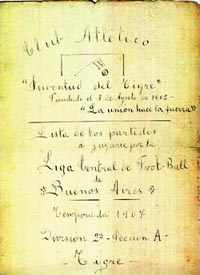 Club Atlético
"Juventud del Tigre"
Fundado el 3 de Agosto de 1902
"La union hace la fuerza"
Lista de los partidos
á jugarse por la
Liga Central de Foot-Ball
de
Buenos Aires
Temporada 1907
División 2ª Sección A-
-Tigre-